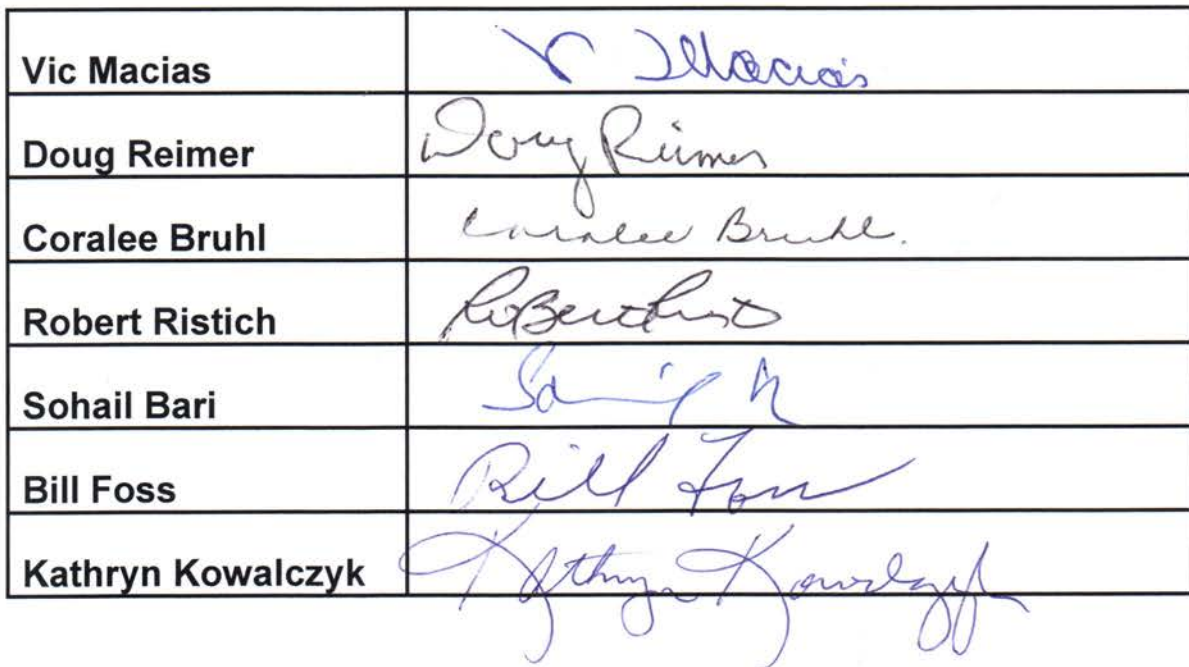 Vic Macias V Macias
Doug Reimer Doug Reimer
Coralee Bruhl Coralee Bruhl.
Robert Ristich Robert
Sohail Bari
Bill Foss Bill Foss
Kathryn Kowalczyk Kathryn Kowalczyk